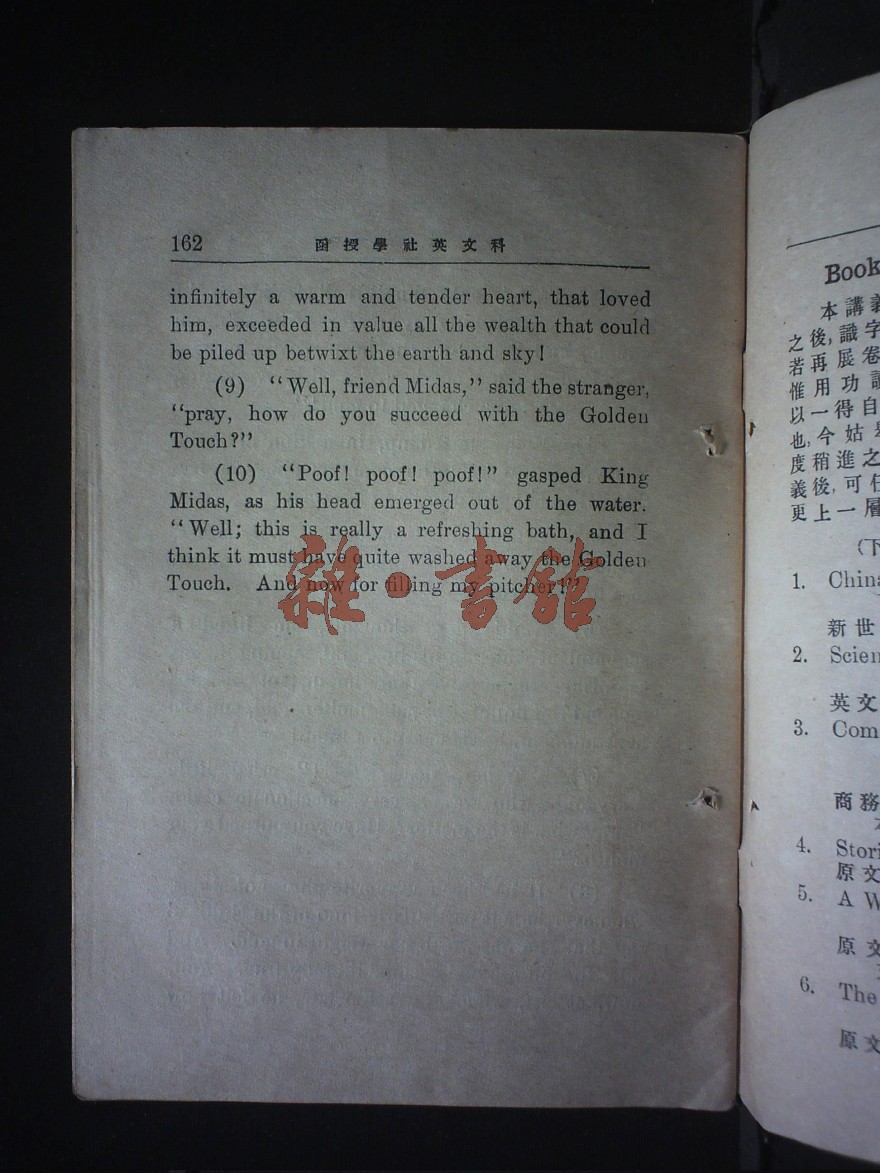 162 函授學社英文科
infinitely a warm and tender heart, that loved
him, exceeded in value all the wealth that could
be piled up betwixt the earth and sky!
(9) “Well, friend Midas,” said the stranger,
“pray, how do you succeed with the Golden
Touch?”
(10) “Poof! poof! poof!” gasped King
Midas, as his head emerged out of the water.
“Well; this is really a refreshing bath, and I
think it must have quite washed away the Golden
Touch. And now for filling my pitcher!”
雜·書館
Book
本講義
之後,識字
若再展卷
惟用功讀
以一得自
也,今姑
度稍進之
義後,可任
更上一層
(下
1. China
新世
2. Scien
英文
3. Com
商務
4. Stori
原文
5. A W
原文
6. The
原文